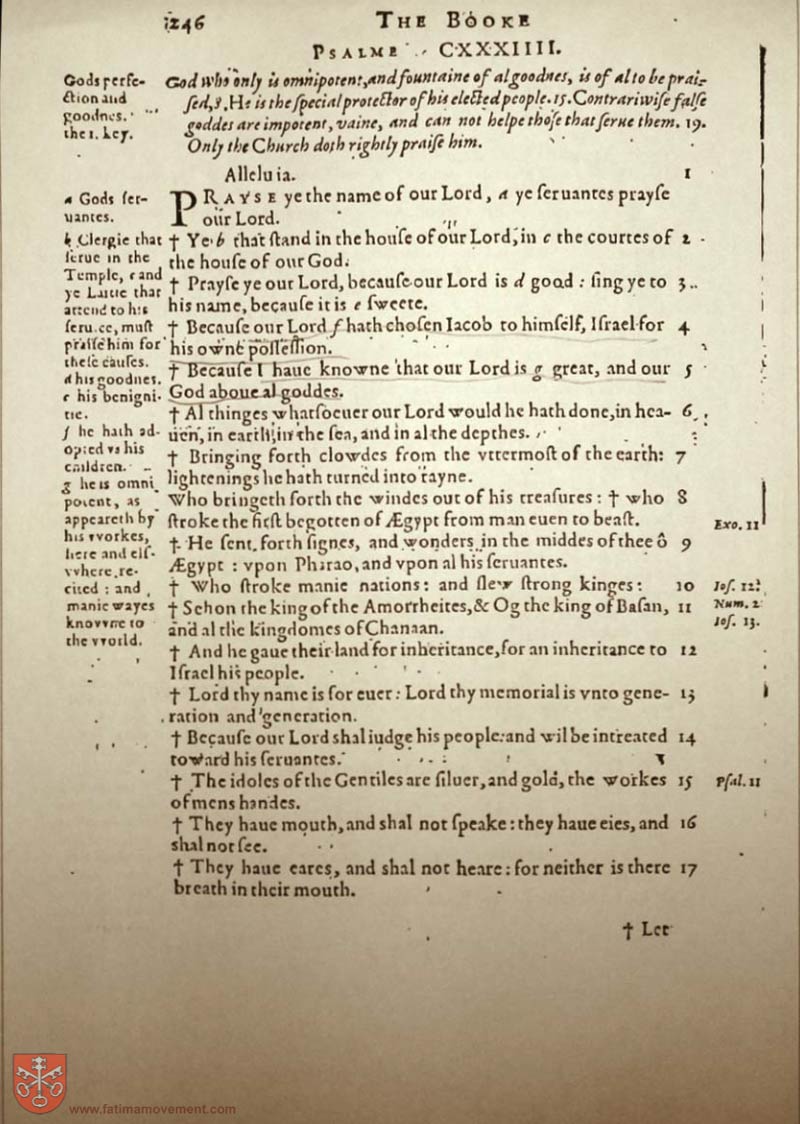 1246
THE BOOKE
PSALME CXXXIIII.
God who only is omnipotent, and fountaine of al goodnes, is of al to be prai-
ſed, 8. He is the ſpecial protector of his elected people. 15. Contrariwiſe falſe
goddes are impotent, vaine, and can not helpe thoſe that ſerue them. 19.
Only the Church doth rightly praiſe him.
Gods perfe-
ction and
goodnes.
the 1. key.
Alleluia. 1
PRAYSE ye the name of our Lord, a ye ſeruantes prayſe
our Lord.
† Ye b that ſtand in the houſe of our Lord, in c the courtes of 2
the houſe of our God.
† Prayſe ye our Lord, becauſe our Lord is d good : ſing ye to 3
his name, becauſe it is e ſweete.
† Becauſe our Lord f hath choſen Iacob to himſelf, Iſrael for 4
his owne poſſeſſion.
† Becauſe I haue knowne that our Lord is g great, and our 5
God aboue al goddes.
† Al thinges whatſoeuer our Lord would he hath done, in hea- 6
uen, in earth, in the ſea, and in al the depthes.
† Bringing forth clowdes from the vttermoſt of the earth: 7
lightenings he hath turned into rayne.
Who bringeth forth the windes out of his treaſures : † who 8
ſtroke the firſt begotten of Ægypt from man euen to beaſt.
† He ſent forth ſignes, and wonders in the middes of thee ô 9
Ægypt : vpon Pharao, and vpon al his ſeruantes.
† Who ſtroke manie nations : and ſlew ſtrong kinges : 10
† Sehon the king of the Amorrheites, & Og the king of Baſan, 11
and al the kingdomes of Chanaan.
† And he gaue their land for inheritance, for an inheritance to 12
Iſrael his people.
† Lord thy name is for euer : Lord thy memorial is vnto gene- 13
ration and generation.
† Becauſe our Lord shal iudge his people: and wil be intreated 14
toward his ſeruantes.
† The idoles of the Gentiles are ſiluer, and gold, the workes 15
of mens handes.
† They haue mouth, and shal not ſpeake : they haue eies, and 16
shal not ſee.
† They haue eares, and shal not heare : for neither is there 17
breath in their mouth.
† Let
a Gods ſer-
uantes.
b Clergie that
ſerue in the
Temple, c and
ye Laitie that
attend to his
ſeruice, muſt
praiſe him for
theſe cauſes.
d his goodnes.
e his benigni-
tie.
f he hath ad-
opted vs his
children.
g he is omni
potent, as
appeareth by
his workes,
here and elſ-
vvhere re-
cited : and
manie wayes
knovvne to
the vvorld.
Exo. 11
Ioſ. 12.
Num. 2
Ioſ. 13.
Pſal. 11
www.fatimamovement.com